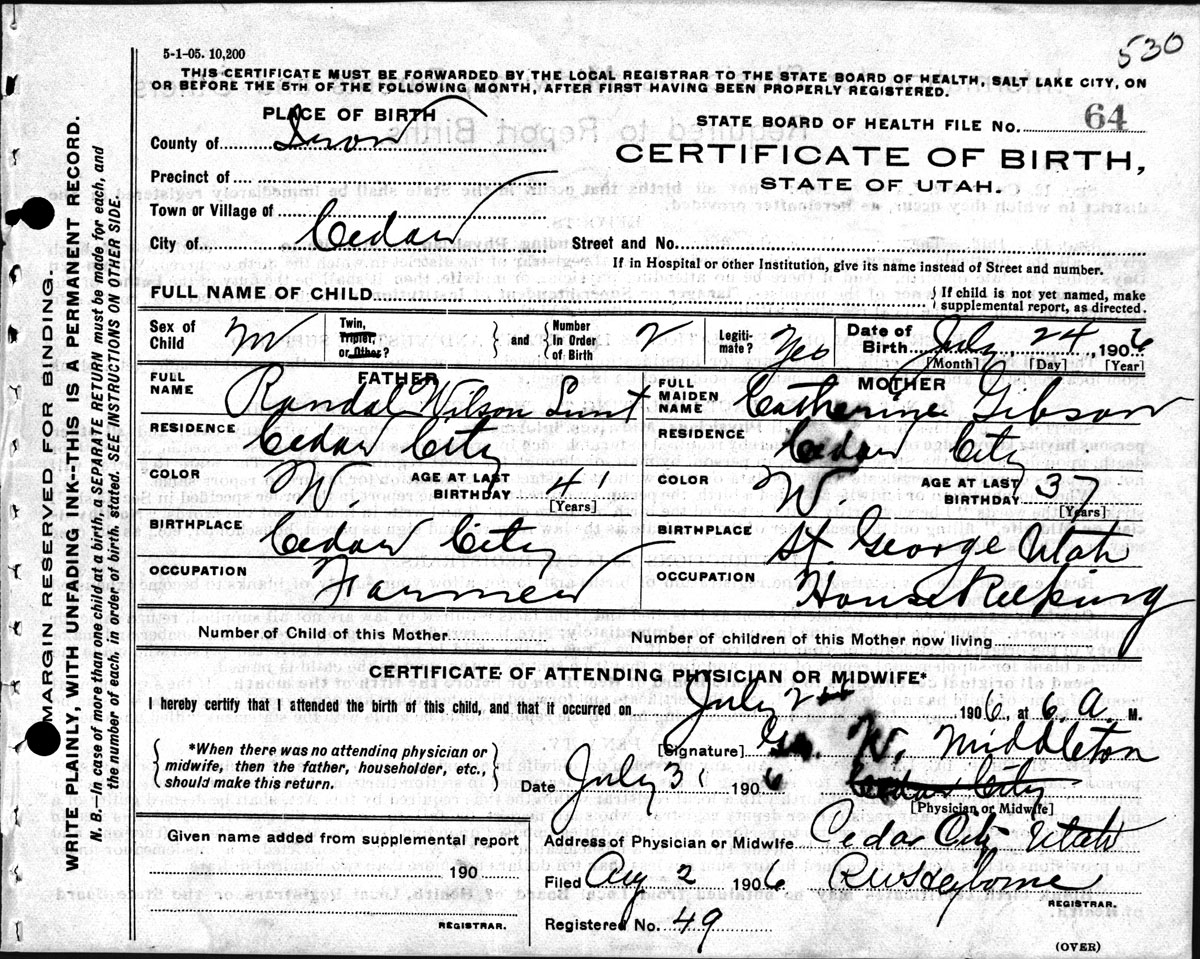 530
5-1-05. 10,200
THIS CERTIFICATE MUST BE FORWARDED BY THE LOCAL REGISTRAR TO THE STATE BOARD OF HEALTH, SALT LAKE CITY, ON
OR BEFORE THE 5TH OF THE FOLLOWING MONTH, AFTER FIRST HAVING BEEN PROPERLY REGISTERED.
PLACE OF BIRTH
STATE BOARD OF HEALTH FILE No. 64
County of Iron
CERTIFICATE OF BIRTH,
Precinct of
STATE OF UTAH.
Town or Village of
City of Cedar
Street and No.
If in Hospital or other Institution, give its name instead of Street and number.
FULL NAME OF CHILD
If child is not yet named, make
supplemental report, as directed.
Sex of Child M
Twin, Triplet, or Other?
and Number In Order of Birth 2
Legitimate? Yes
Date of Birth July 24 1906
[Month] [Day] [Year]
FATHER
FULL NAME Randal Wilson Lunt
RESIDENCE Cedar City
COLOR W. AGE AT LAST BIRTHDAY 4
[Years]
BIRTHPLACE Cedar City
OCCUPATION Farmer
MOTHER
FULL MAIDEN NAME Catherine Gibson
RESIDENCE Cedar City
COLOR W AGE AT LAST BIRTHDAY 37
[Years]
BIRTHPLACE St. George Utah
OCCUPATION House Keeping
Number of Child of this Mother
Number of children of this Mother now living
CERTIFICATE OF ATTENDING PHYSICIAN OR MIDWIFE*
I hereby certify that I attended the birth of this child, and that it occurred on July 24 1906, at 6 A. M.
*When there was no attending physician or
midwife, then the father, householder, etc.,
should make this return.
[Signature] Geo. W. Middleton
Date July 31 1906 Cedar City
[Physician or Midwife]
Given name added from supplemental report
190
REGISTRAR.
Address of Physician or Midwife Cedar City Utah
Filed Aug 2 1906.
REGISTRAR.
Registered No. 49
(OVER)
MARGIN RESERVED FOR BINDING.
WRITE PLAINLY, WITH UNFADING INK--THIS IS A PERMANENT RECORD.
N. B.—In case of more than one child at birth, a SEPARATE RETURN must be made for each, and
the number of each, in order of birth, stated. SEE INSTRUCTIONS ON OTHER SIDE.